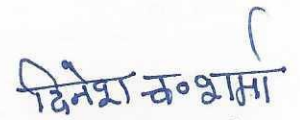 दिनेश च०शर्मा